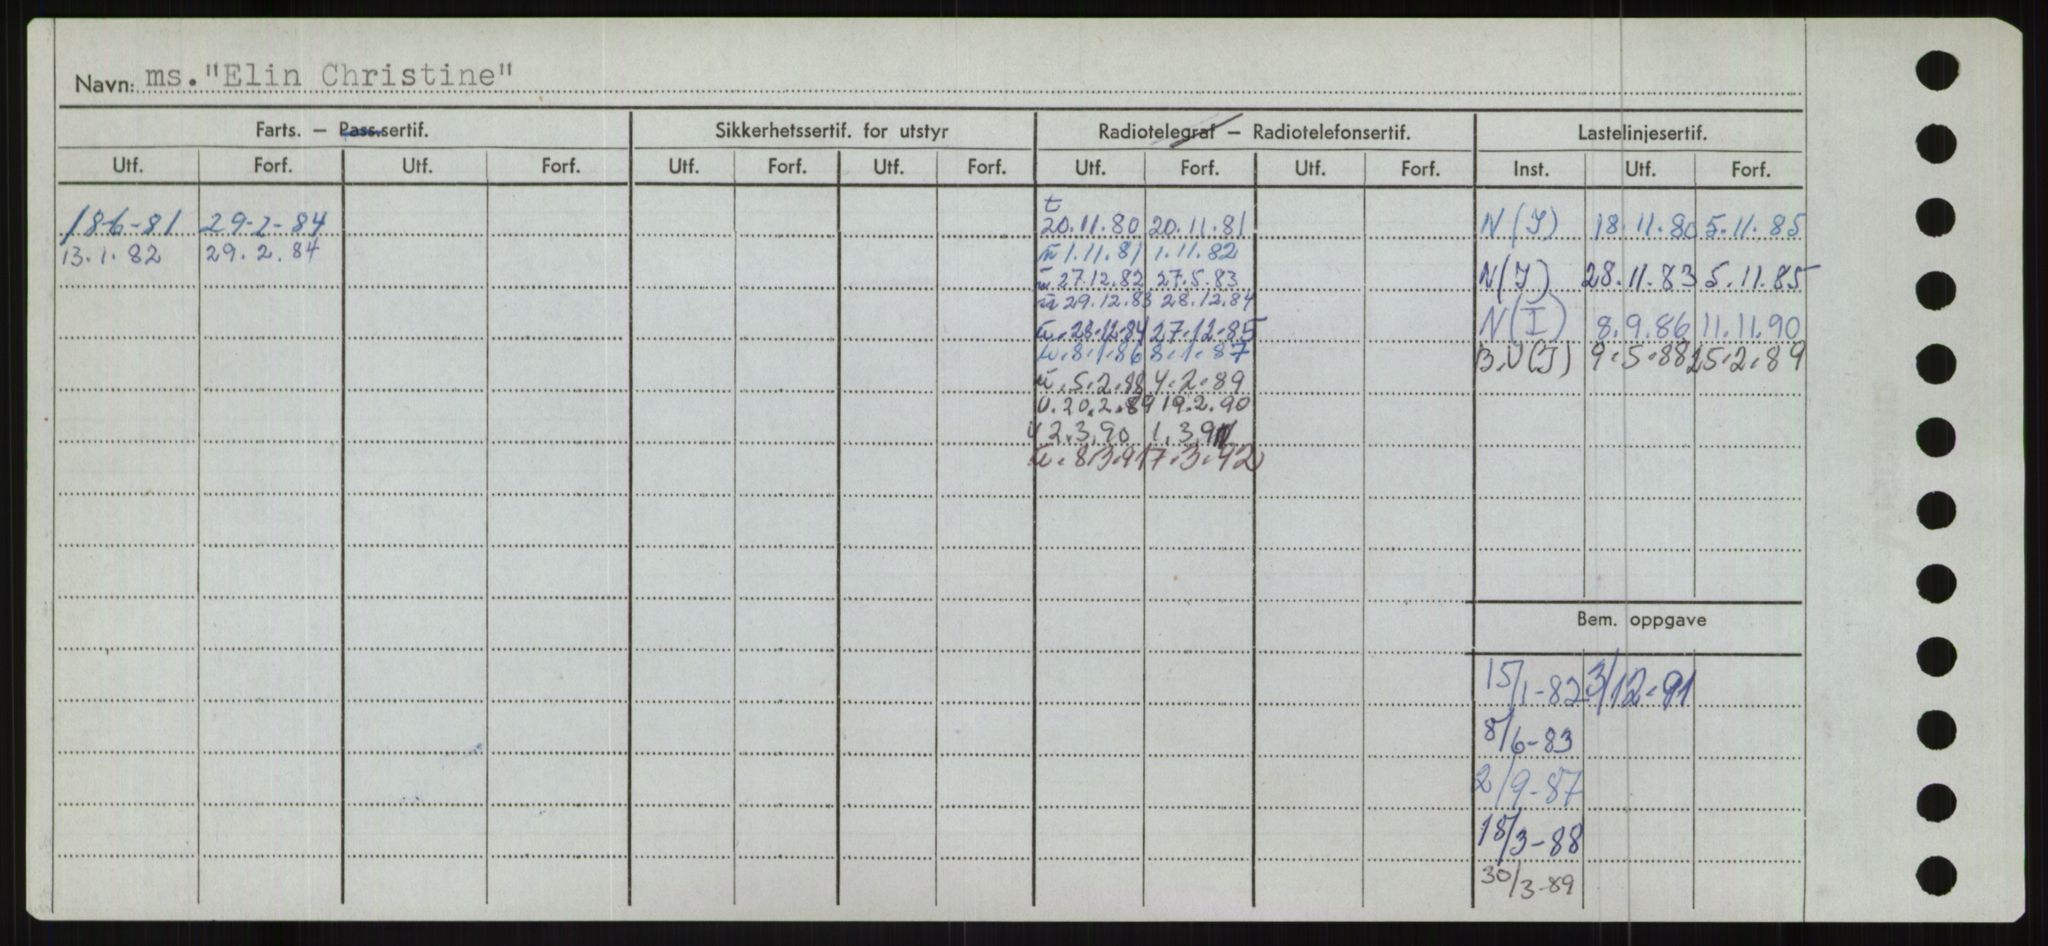 Navn: ms. "Elin Christine"
Farts. – Pass.sertif. Sikkerhetssertif. for utstyr Radiotelegraf – Radiotelefonsertif. Lastelinjesertif.
Utf. Forf. Utf. Forf. Utf. Forf. Utf. Forf. Utf. Forf. Utf. Forf. Inst. Utf. Forf.
t
18-6-81 29-2-84 20.11.80 20.11.81 N(I) 18.11.80 5.11.85
13.1.82 29.2.84 1.11.81 1.11.82
27.12.82 27.5.83 N(I) 28.11.83 5.11.85
29.12.83 28.12.84
28.12.84 27.12.85 N(I) 8.9.86 11.11.90
8.1.86 8.1.87 B.V(I) 9.5.88 15.2.89
5.2.88 4.2.89
20.2.89 19.2.90
2.3.90 1.3.91
8.3.91 7.3.92
Bem. oppgave
15/1-82 3/12.91
8/6-83
2/9-87
18/3-88
30/3-89